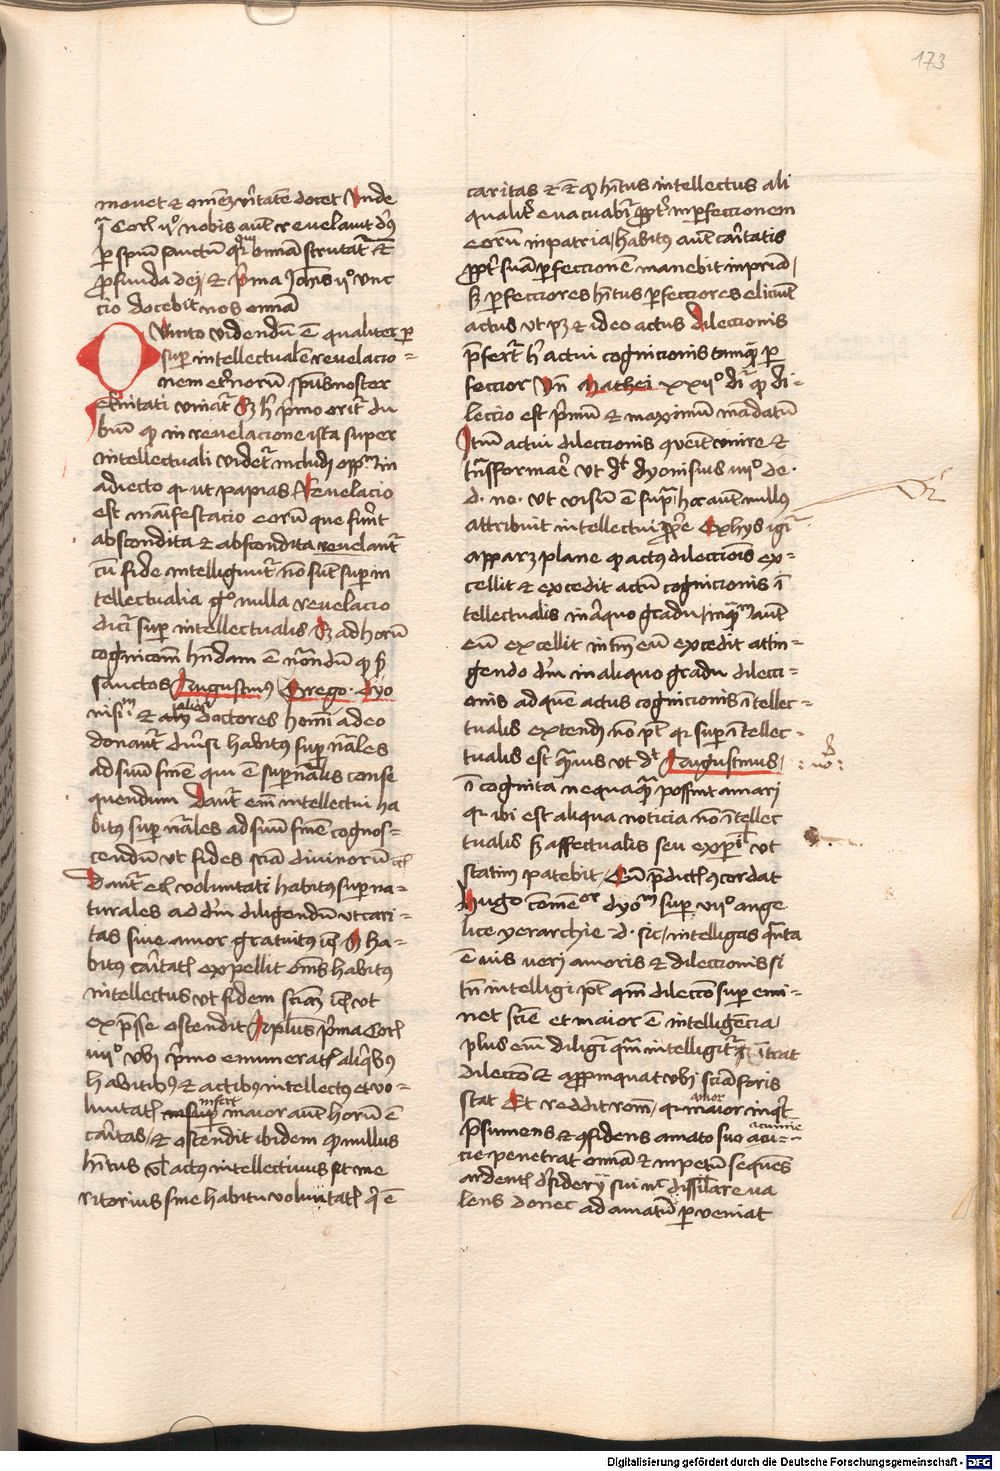 173
mouet & omnem veritatem docet Unde
i Cor ii° nobis autem reuelauit deus
per spiritum sanctum quia omnia scrutatur &
profunda dei / & prima Johis ii° unc
cio docebit nos omnia
Quinto videndum e qualiter per
super intellectualem reuelacio-
nem eternorum spiritus noster
eternitati uniatur Sed hic primo oritur du
bium quod in reuelacione ista super
intellectuali videtur includi oppositum in
adiecto quia ut papias Reuelacio
est manifestacio eorum que sunt
abscondita & abscondita reuelantur
cum fide intelliguntur non sunt super in
tellectualia ergo nulla reuelacio
dicitur super intellectualis Sed ad horum
cognicionem habendam e notandum quod secundum
sanctos Augustinus Grego. dyo
nisium & alios doctores homini a deo
donantur diuersi habitus super naturales
ad suum finem qui e supernaturalis conse
quendum Dantur enim intellectui ha
bitus super naturales ad suum finem cognos-
cendum ut fides sciencia diuinorum etc
Dantur etiam voluntati habitus superna-
turales ad deum diligendum ut cari-
tas siue amor gratuitus etc Sed ha-
bitus caritatis expellit omnes habitus
intellectus ut fidem scienciam etc ut
expresse ostendit Apostolus prima Cor
xiii° ubi primo enumeratis aliquibus
habitibus & actibus intellectus et vo-
luntatis infert maior autem horum e
caritas / & ostendit ibidem quod nullus
habitus vel actus intellectiuus sit me
ritorius sine habitu voluntatis qui e
caritas & e quod habitus intellectus ali
qualiter euacuabitur propter inperfeccionem
eorum in patria / habitus autem caritatis
propter suam perfeccionem manebit in patria /
sed perfecciores habitus perfecciores eliciunt
actus ut patet & ideo actus dileccionis
prefertur hic actui cognicionis tamquam per
feccior Unde Mathei xxii° dicitur quod di-
leccio est primum & maximum mandatum
Iterum actui dileccionis conuenit unire &
transformare ut dicit dyonisius iiii° de.
d. no. ut visum e supra / hoc autem nullus
attribuit intellectui proprie Ex hys igitur
apparet plane quod actus dileccionis ex-
cellit & excedit actum cognicionis in
tellectualis in aliquo gradu / inquantum autem
eum excellit in tantum eum excedit attin-
gendo deum in aliquo gradu dilecci-
onis ad quem actus cognicionis intellec-
tualis extendi non potest quia super intellec-
tualis est quamuis ut dicit Augustinus /
incognita nequaquam possint amari
quia ibi est aliqua noticia non intellec
tualis sed affectualis seu experimentalis ut
statim patebit / Cum predictis concordat
Hugo commentator dyonisium super vii° ange
lice yerarchie d. sic / intelligas quanta
e uis ueri amoris & dileccionis si
tamen intelligi potest quoniam dileccio super emi-
net sciencie et maior e intelligencia /
plus enim diligitur quam intelligitur & intrat
dileccio & appropinquat ubi sciencia foris
stat Et reddit racionem / quia amor inquit
presumens & confidens amato suo acumine
penetrat omnia & inpetum sequens
ardentis desiderii sui nec dissimulare ua
lens donec ad amatum perueniat
Digitalisierung gefördert durch die Deutsche Forschungsgemeinschaft - DFG